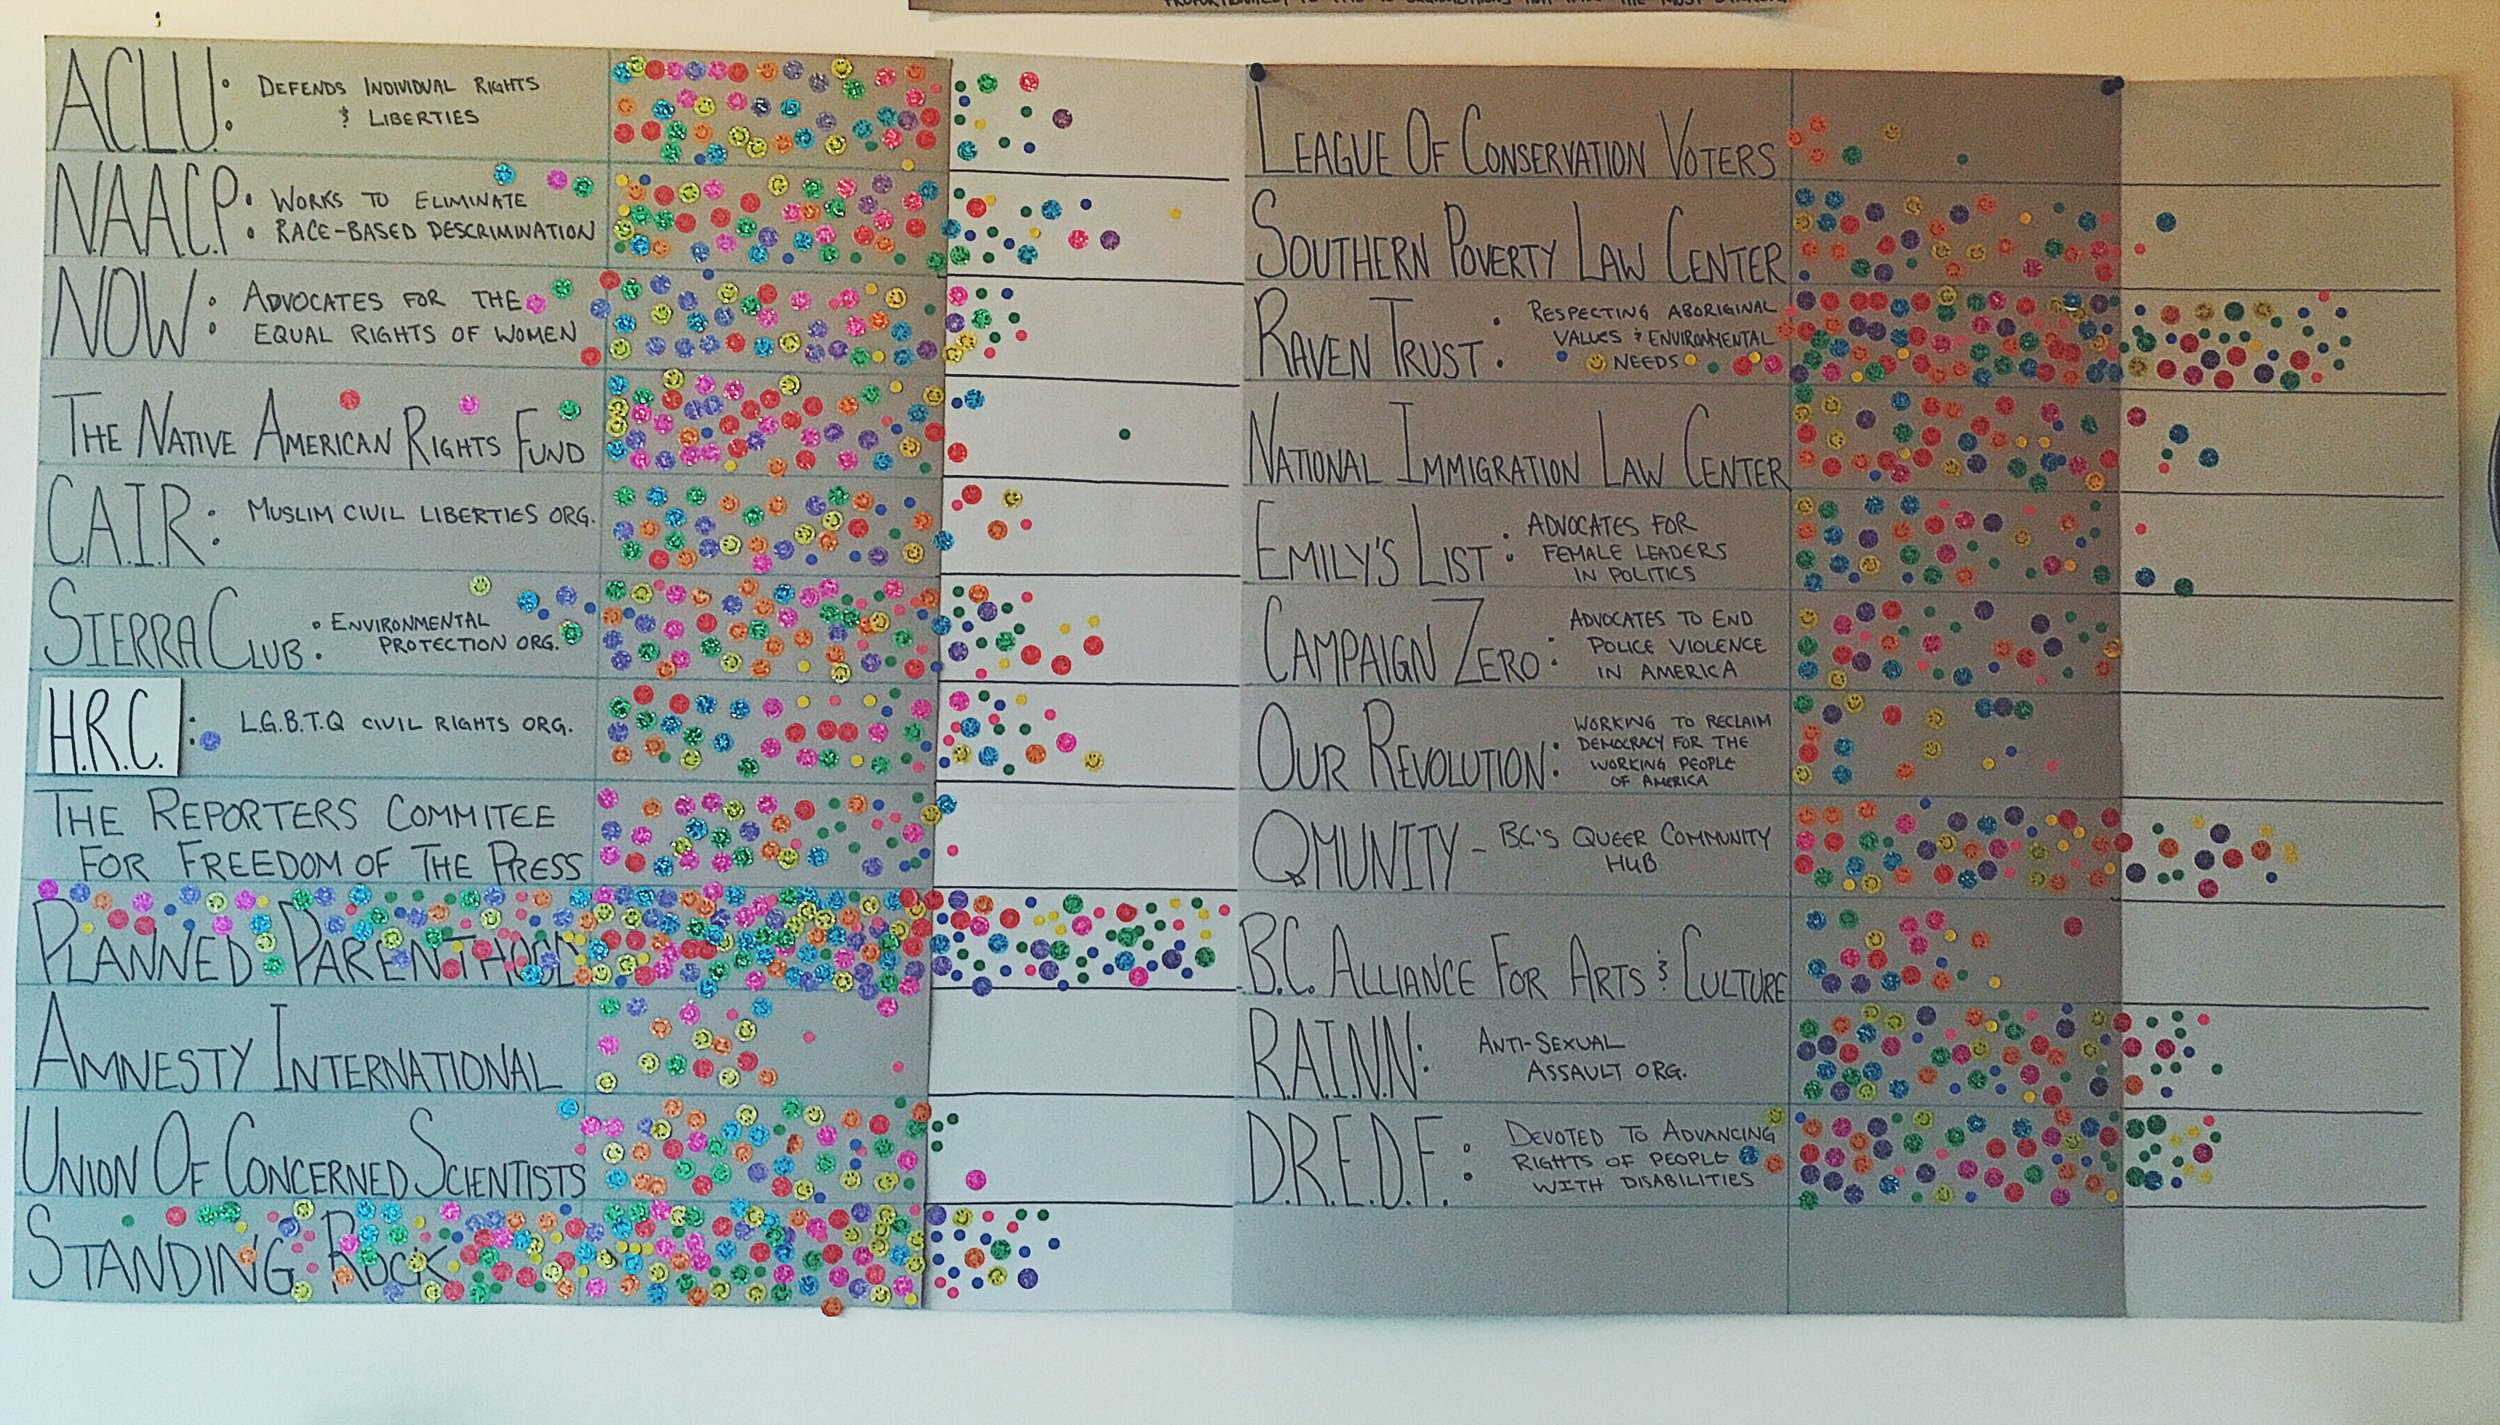 PROPORTIONATELY TO THE 10 ORGANIZATIONS THAT HAVE THE MOST STICKERS
A.C.L.U.: DEFENDS INDIVIDUAL RIGHTS
& LIBERTIES
N.A.A.C.P: WORKS TO ELIMINATE
RACE-BASED DESCRIMINATION
NOW: ADVOCATES FOR THE
EQUAL RIGHTS OF WOMEN
THE NATIVE AMERICAN RIGHTS FUND
C.A.I.R: MUSLIM CIVIL LIBERTIES ORG.
SIERRA CLUB: ENVIRONMENTAL
PROTECTION ORG.
H.R.C.: L.G.B.T.Q CIVIL RIGHTS ORG.
THE REPORTERS COMMITEE
FOR FREEDOM OF THE PRESS
PLANNED PARENTHOOD
AMNESTY INTERNATIONAL
UNION OF CONCERNED SCIENTISTS
STANDING ROCK
LEAGUE OF CONSERVATION VOTERS
SOUTHERN POVERTY LAW CENTER
RAVEN TRUST: RESPECTING ABORIGINAL
VALUES & ENVIRONMENTAL
NEEDS
NATIONAL IMMIGRATION LAW CENTER
EMILY'S LIST: ADVOCATES FOR
FEMALE LEADERS
IN POLITICS
CAMPAIGN ZERO: ADVOCATES TO END
POLICE VIOLENCE
IN AMERICA
OUR REVOLUTION: WORKING TO RECLAIM
DEMOCRACY FOR THE
WORKING PEOPLE
OF AMERICA
QMUNITY - BC'S QUEER COMMUNITY
HUB
B.C. ALLIANCE FOR ARTS & CULTURE
R.A.I.N.N: ANTI-SEXUAL
ASSAULT ORG.
D.R.E.D.F.: DEVOTED TO ADVANCING
RIGHTS OF PEOPLE
WITH DISABILITIES